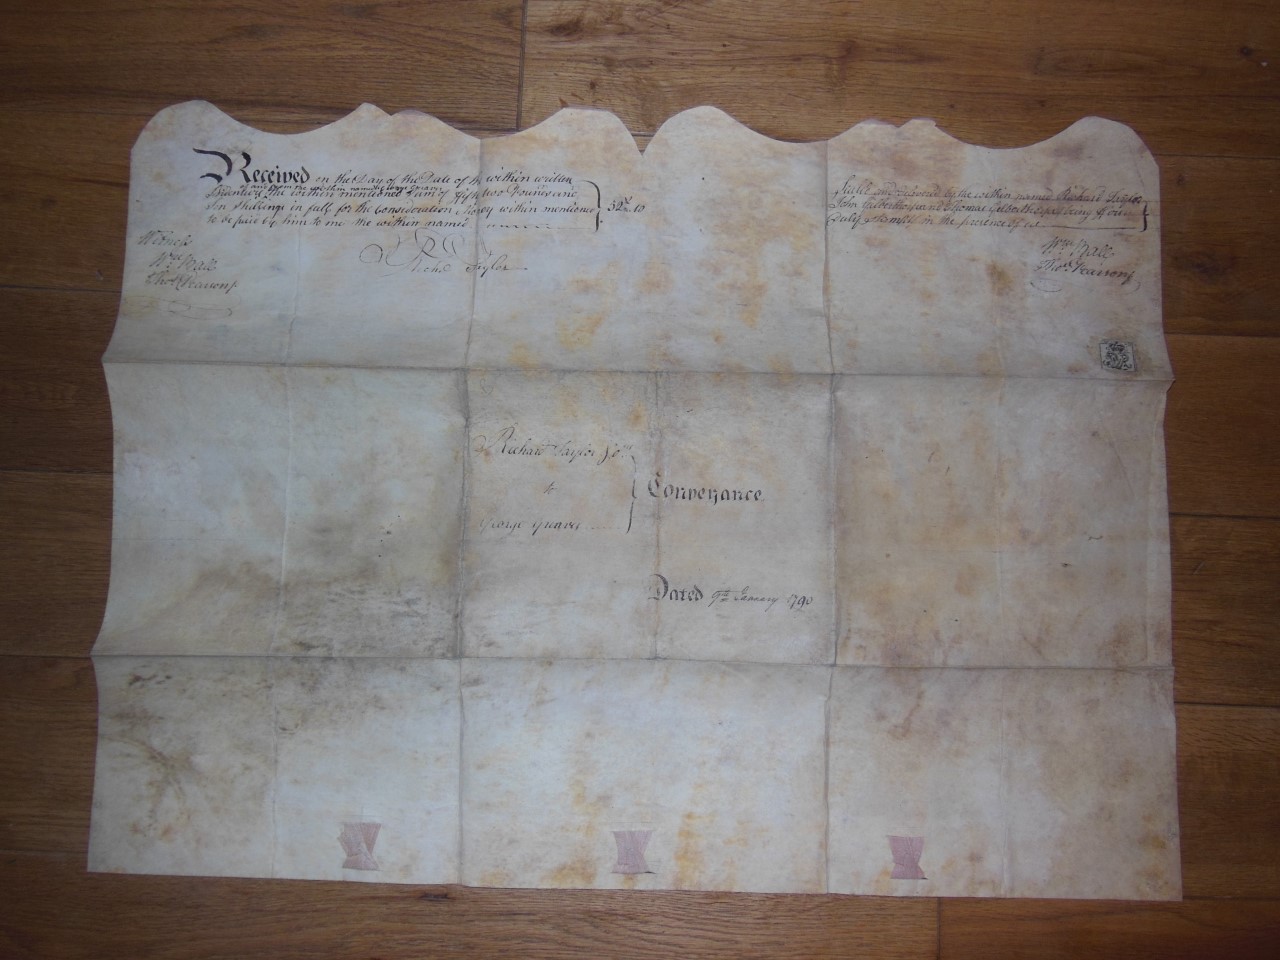 Received on the Day of the Date of the within written
of and from the within named George Greaves
Indenture the within mentioned Sum of Fifty two Pounds and
Ten Shillings in full for the Consideration Money within mentioned
to be paid by him to me the within named
52£ 10
Witness
Wm Hall
Thos Pearson
Richd Taylor
Sealed and delivered by the within named Richard Taylor
John and Thomas being first
Duly Stampt in the presence of us
Wm Hall
Thos Pearson
Richard Taylor
to
George Greaves
Conveyance
Dated 9th January 1790